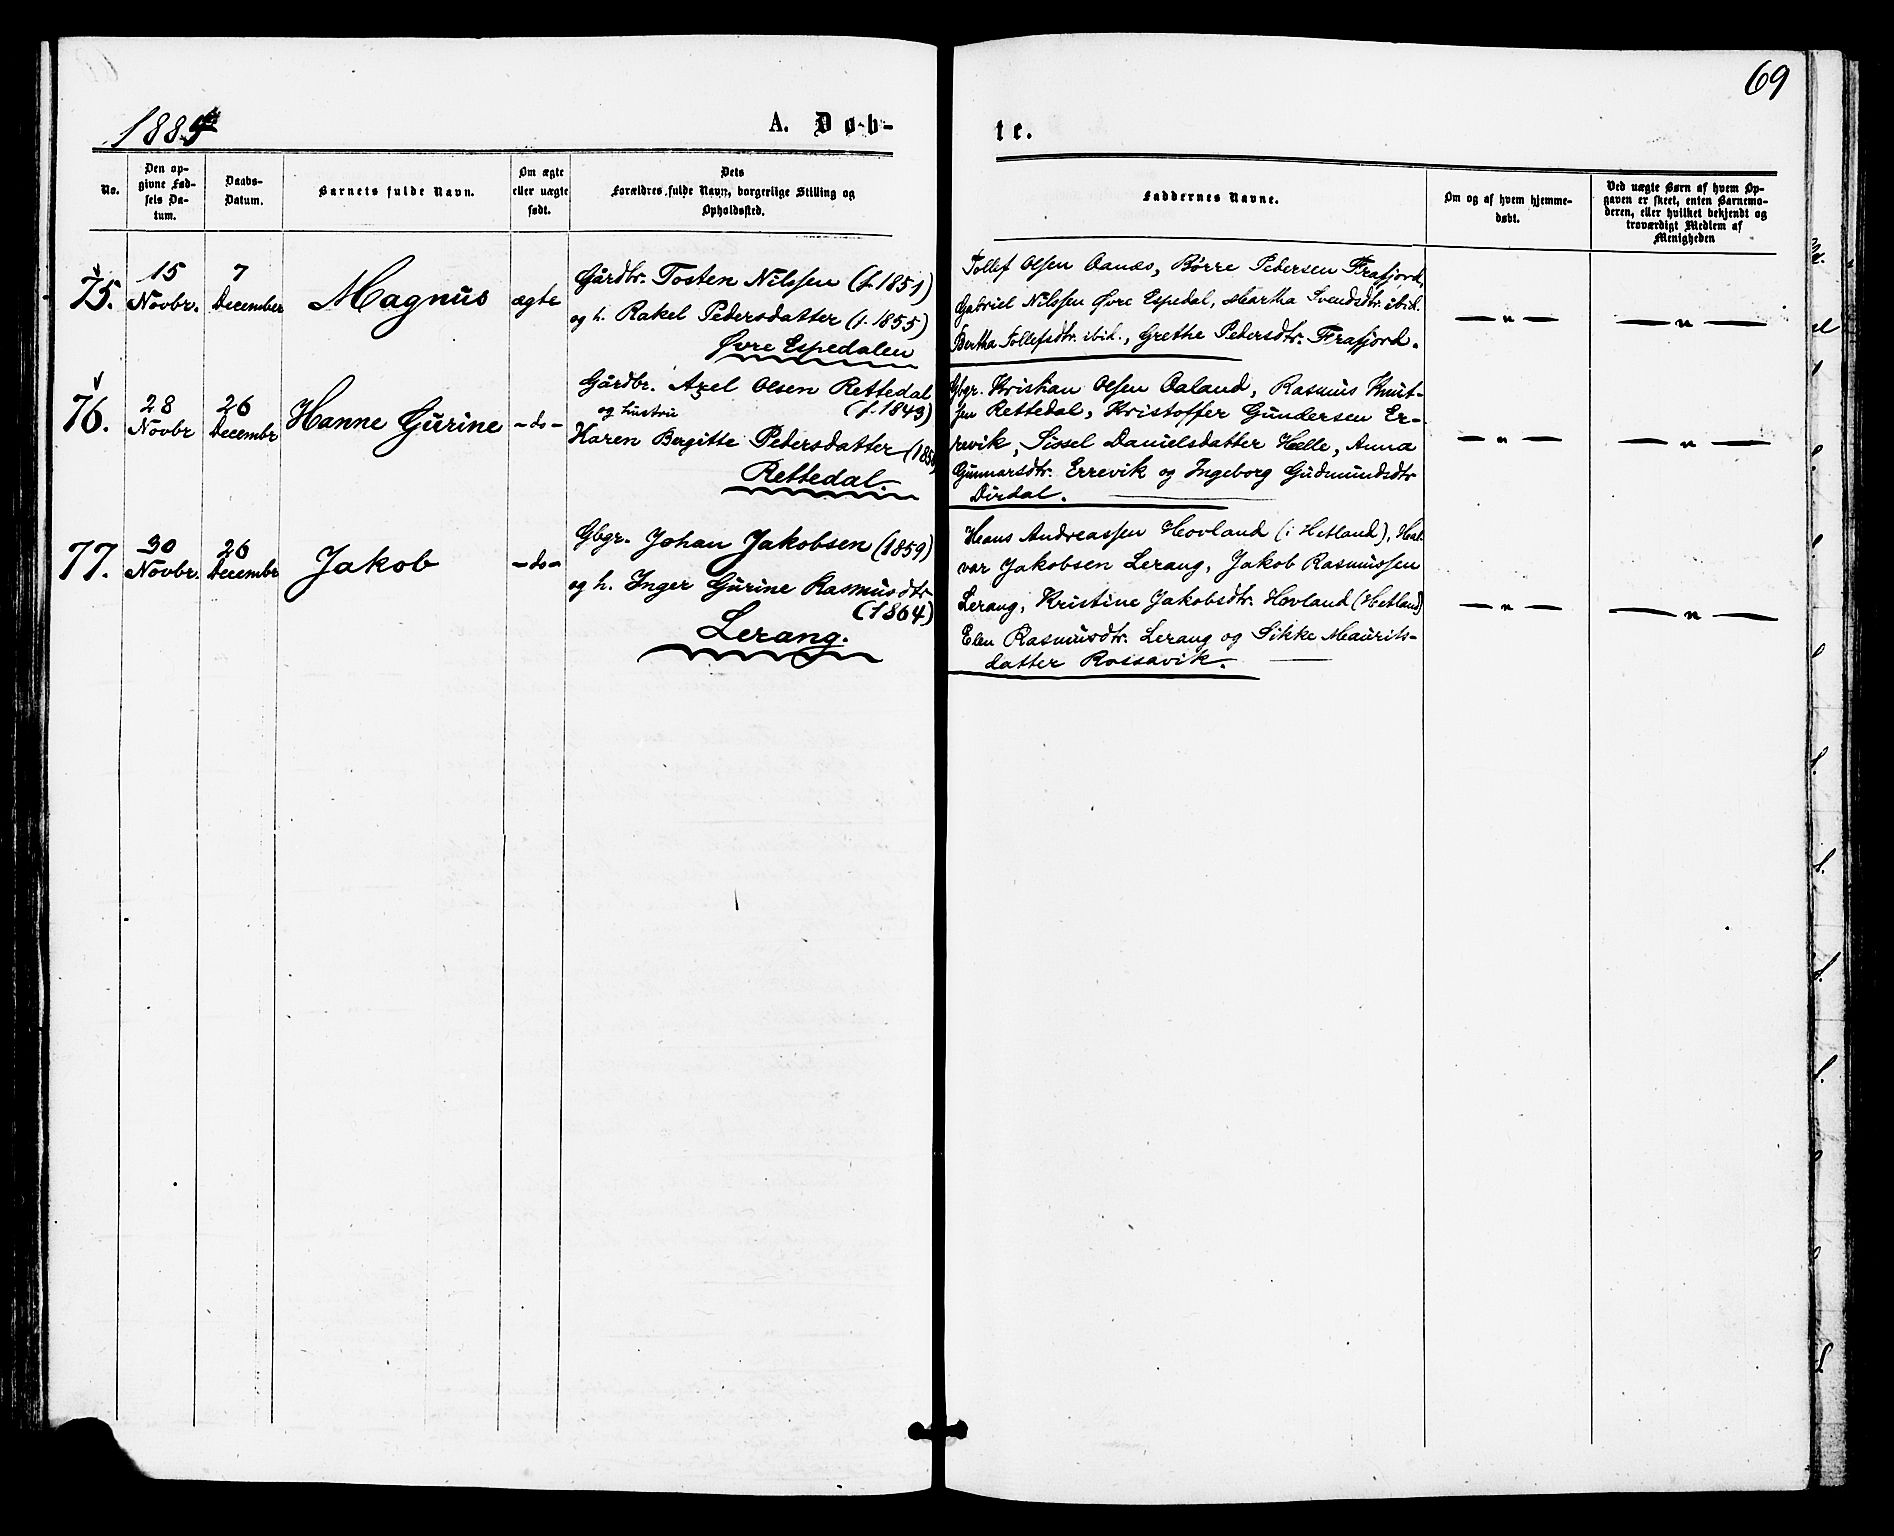 69
1884
A. Døb-
te.
No.
Den op-
givne Fød-
sels Da-
tum.
Daabs-
Datum.
Barnets fulde Navn.
Om ægte
eller uægte
født.
Dets
Forældres fulde Navn, borgerlige Stilling og
Opholdssted.
Faddernes Navne.
Om og af hvem hjemme-
døbt.
Ved uægte Børn af hvem Op-
gaven er skeet, enten Barnemo-
deren, eller hvilket bekjendt og
troværdigt Medlem af
Menigheden
75.
15
Novbr.
7
December
Magnus
ægte
Gårdbr. Tosten Nilssen (f. 1851)
og h. Rakel Pedersdatter (f. 1855)
Øvre Espedalen
Tollef Olsen Oanes, Børre Pedersen Frafjord,
Gabriel Nilssen Øvre Espedal, Martha Svendsdtr. ibid.
Bertha Tollefsdtr. ibid., Grethe Pedersdtr. Frafjord.
— " —
— " —
76.
28
Novbr
26
Decembr
Hanne Gurine
-do-
Gårdbr. Axel Olsen Rettedal
og hustru (f. 1843)
Karen Bergitte Pedersdatter
Rettedal.
Gbgr. Kristian Olsen Aaland, Rasmus Knut-
sen Rettedal, Kristoffer Gundersen Er-
revik, Sissel Danielsdatter Helle, Anna
Gunnarsdtr. Errevik og Ingeborg Gudmundsdtr
Dirdal.
— " —
— " —
77.
30
Novbr.
26
Decembr
Jakob
-do-
Gbgr. Johan Jakobsen (1859)
og h. Inger Gurine Rasmusdtr
(1864)
Lerang.
Hans Andreassen Hovland (i Hetland), Hal-
var Jakobsen Lerang, Jakob Rasmussen
Lerang, Kristine Jakobsdtr. Hovland (Hetland)
Elen Rasmusdtr. Lerang og Sikke Maurits-
datter Rossavik.
— " —
— " —